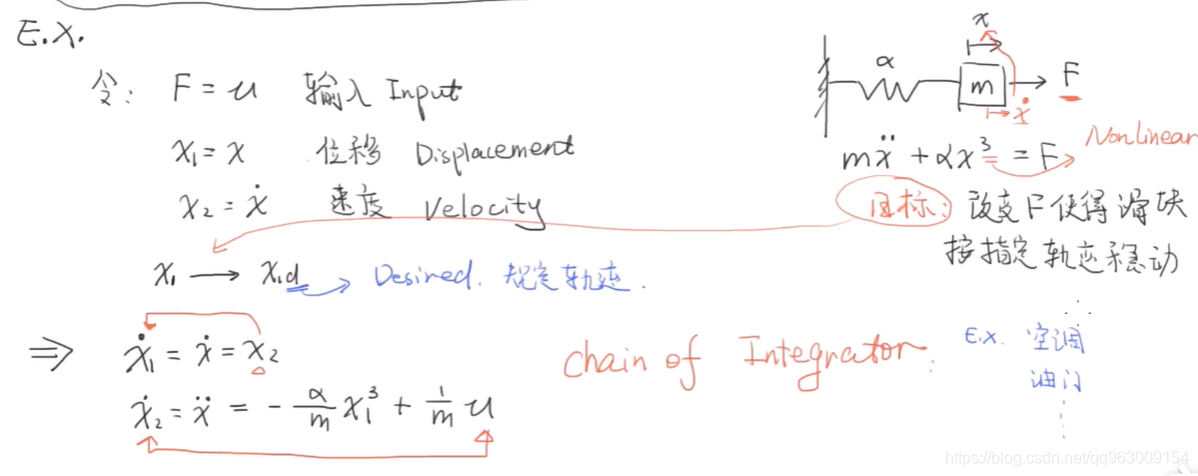 E.X.
令: F = u 输入 Input
x₁ = x 位移 Displacement
x₂ = ẋ 速度 Velocity
x₁ → x₁d Desired. 规定轨迹.
⇒ ẋ₁ = ẋ = x₂
ẋ₂ = ẍ = - α/m x₁³ + 1/m u
Chain of Integrator.
x
α
m
F
ẋ
mẍ + αx³ = F Nonlinear
目标: 改变F使得滑块
按指定轨迹移动
E.X. 空调
油门
https://blog.csdn.net/qq963009154